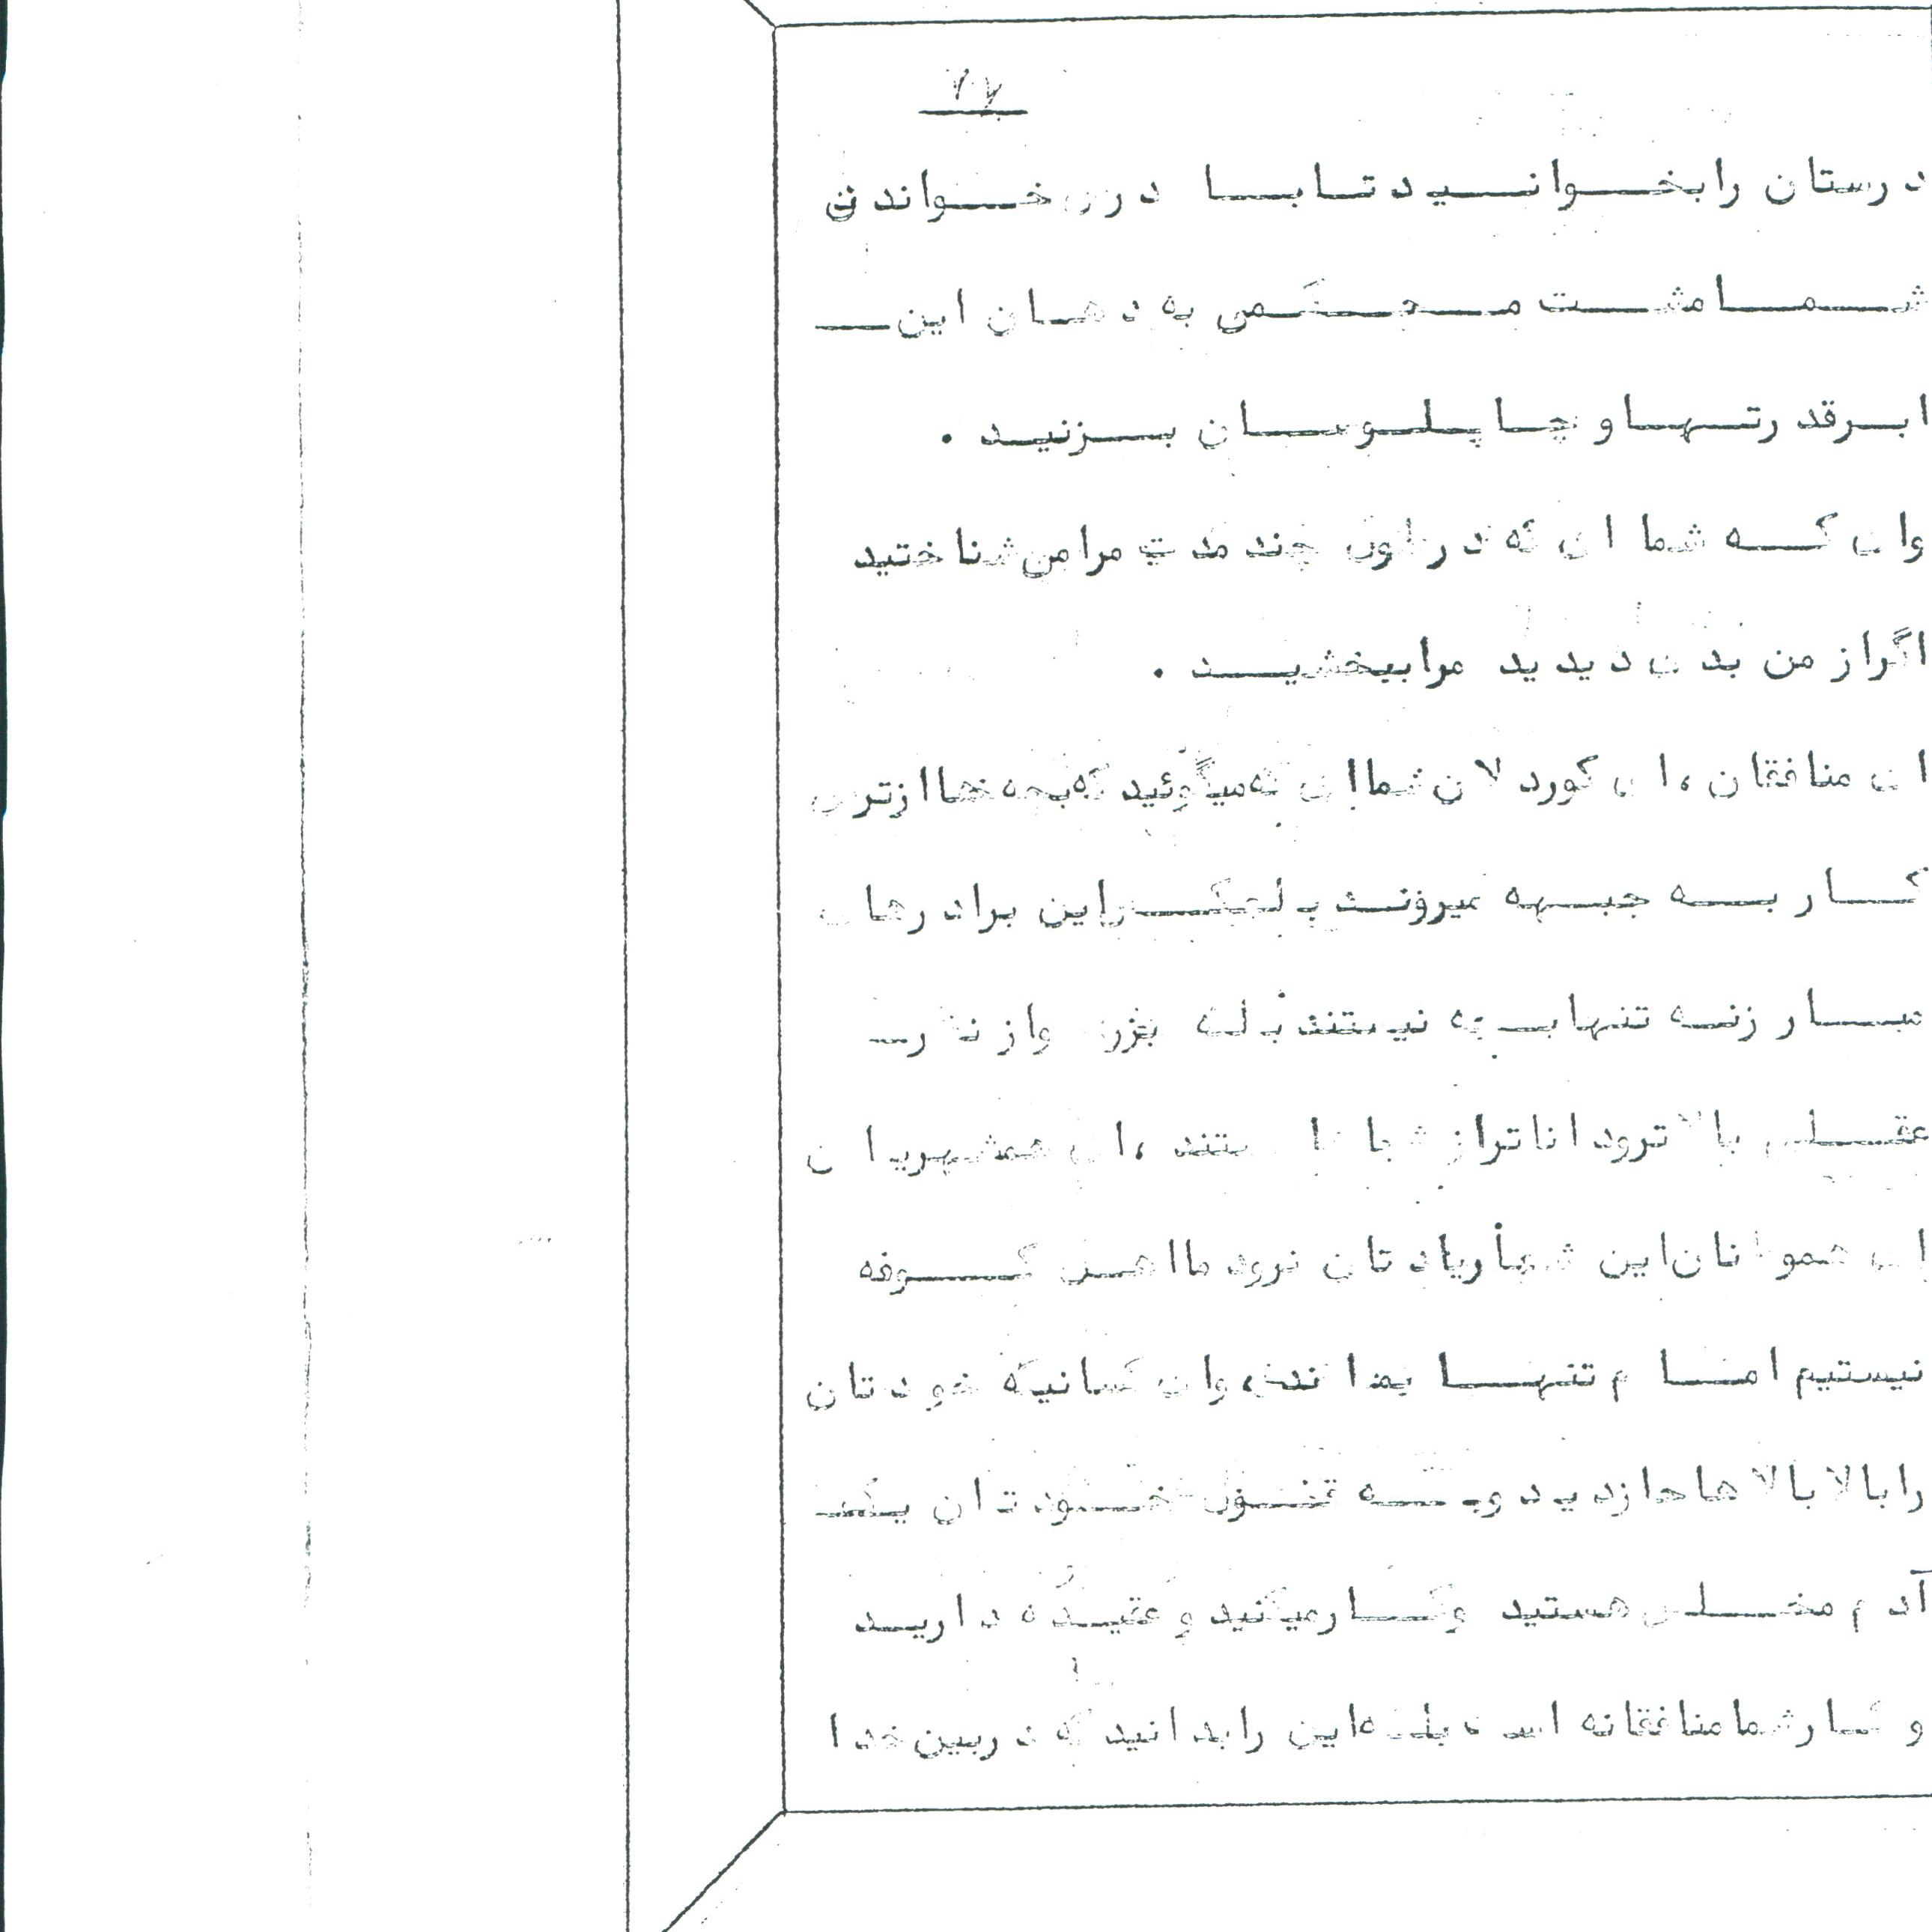 ۲۷
درستان را بخوانید تا با درس خواندن
شما مشت محکمی به دهان این
ابرقدرتها و چاپلوسان بزنید .
وای که شما ای که در طول چند مدت مرا می شناختید
اگر از من بدی دیدید مرا ببخشید .
ای منافقان ، ای کوردلان شما ای که میگوئید که بچه ها از ترس
کار به جبهه میروند این برادرهای
تنها بچه نیستند بلکه از نظر
عقلی بالاتر و داناتر از شما ، ای همشهریان
ای این شما را یادتان نرود ما اهل کوفه
نیستیم امام تنها بماند ، وای کسانیکه خودتان
را بالا بالاها جا زدید و به قول خودتان یک
آدم مخلص هستید و کار میکنید و عقیده دارید
و کار شما منافقانه است بلکه این را بدانید که در بین خدا